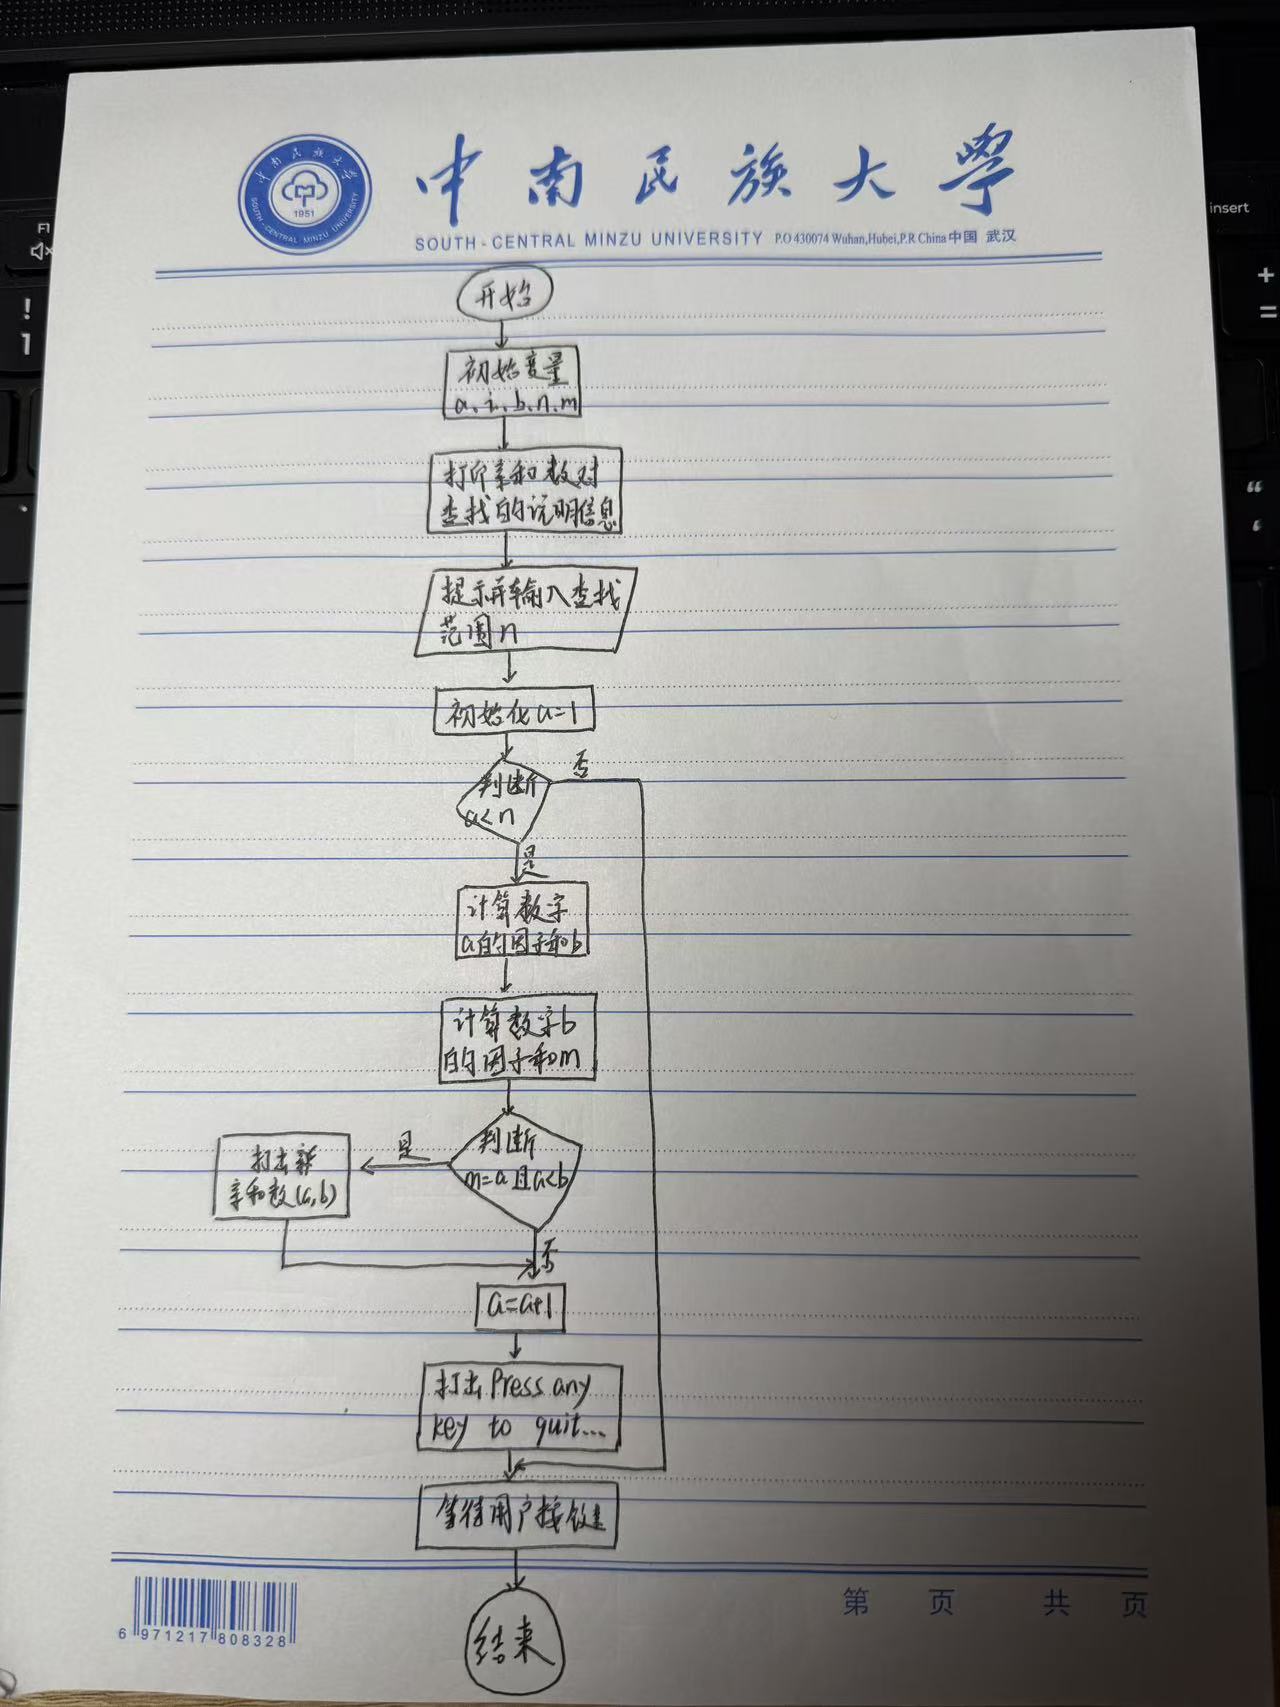 中南民族大学
SOUTH-CENTRAL MINZU UNIVERSITY P.O 430074 Wuhan,Hubei,P.R China 中国 武汉
中南民族大学
1951
SOUTH-CENTRAL MINZU UNIVERSITY
F1
insert
!
1
+
=
开始
初始变量
a、i、b、n、m
打印亲和数对
查找的说明信息
提示并输入查找
范围n
初始化a=1
判断
a<n
否
是
计算数字
a的因子和b
计算数字b
的因子和m
判断
m=a且a<b
是
打出
亲和数(a,b)
否
a=a+1
打出Press any
key to quit...
等待用户按键
结束
6 971217 808328
第 页 共 页